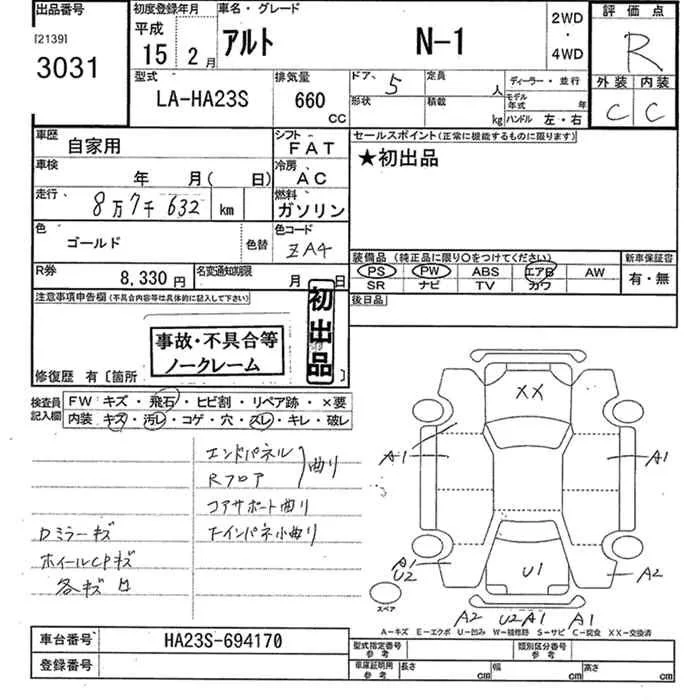 出品番号
[2139]
3031
初度登録年月
平成
15 年 2 月
車名・グレード
アルト N-1
2WD
・
4WD
評価点
R
型式
LA-HA23S
排気量
660 CC
ドア 5
形状
定員 人
積載 kg
ディーラー・並行
モデル年式 年
ハンドル 左・右
外装 内装
C C
車歴
自家用
シフト
FAT
車検
年 月( 日)
冷房
AC
走行
8万7千632 km
燃料
ガソリン
色
ゴールド
色替
色コード
ZA4
R券
8,330円
名変通知期限
月 日
セールスポイント(正常に機能するものに限ります)
★初出品
装備品 (純正品に限り○をつけてください)
PS PW ABS エアB AW
SR ナビ TV カワ
新車保証書
有・無
後日品
注意事項申告欄(不具合内容等は具体的に記入して下さい)
初出品
事故・不具合等
ノークレーム
修復歴 有〔箇所 〕
検査員記入欄
FW キズ・飛石・ヒビ割・リペア跡・×要
内装 キズ・汚レ・コゲ・穴・スレ・キレ・破レ
エンドパネル
Rフロア
曲り
コアサポート曲り
Dミラーキズ
インパネ小曲り
ホイールCPキズ
各キズ凹
XX
A1 A1
A1
U2
U1
A2
スペア
A2 U2 A1 A1
A-キズ E-エクボ U-凹み W-補修跡 S-サビ C-腐食 XX-交換済
車台番号
HA23S-694170
登録番号
型式指定番号
参考
類別区分番号
参考
車庫証明用
参考
長さ cm
幅 cm
高さ cm